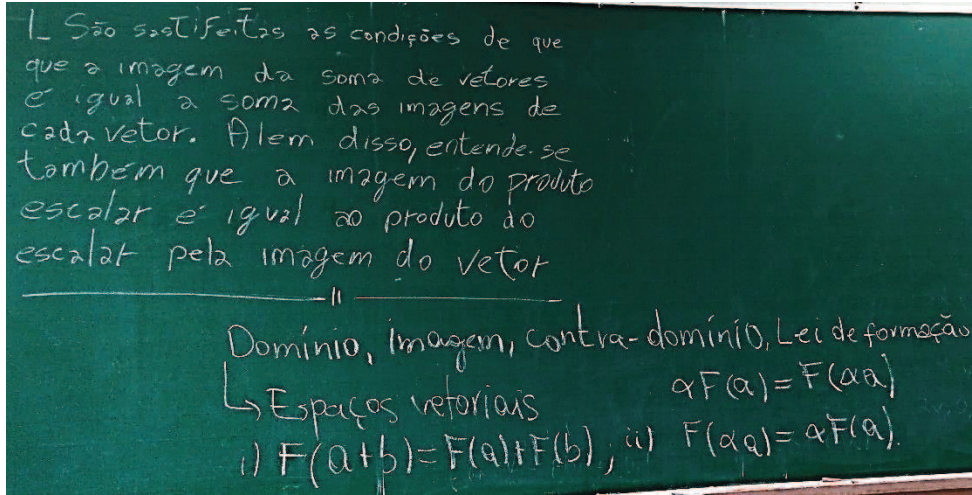 L São sastifeitas as condições de que
que a imagem da soma de vetores
é igual a soma das imagens de
cada vetor. Alem disso, entende-se
também que a imagem do produto
escalar é igual ao produto do
escalar pela imagem do vetor
Domínio, Imagem, contra-domínio, Lei de formação
↳ Espaços vetoriais
αF(a) = F(αa)
i) F(a+b) = F(a)+F(b), ii) F(αa) = αF(a).